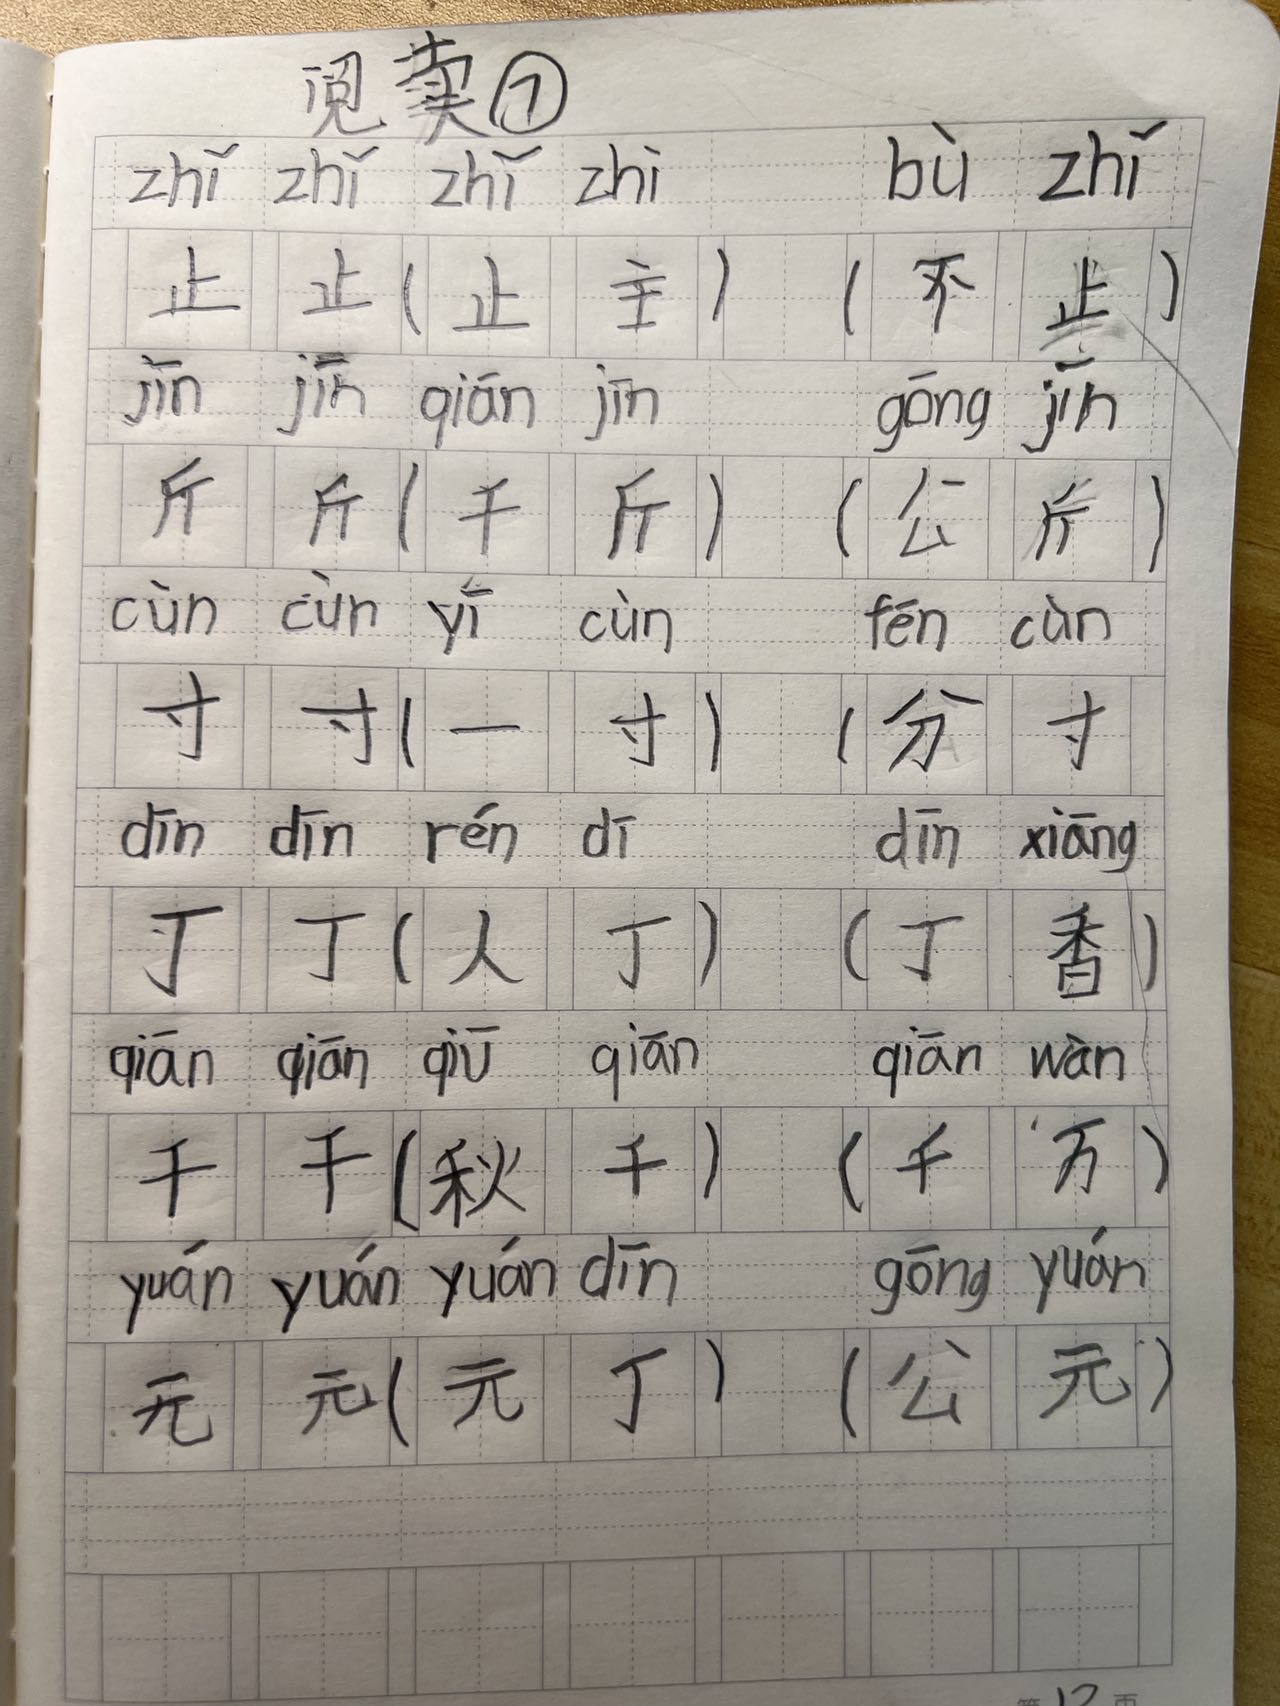 zhǐ zhǐ zhǐ zhì bù zhǐ
止 止 (止 主) (不 止)
jīn jīn qián jīn gōng jīn
斤 斤 (千 斤) (公 斤)
cùn cùn yī cùn fēn cùn
寸 寸 (一 寸) (分 寸
dīn dīn rén dī dīn xiāng
丁 丁 (人 丁) (丁 香)
qiān qiān qiū qiān qiān wàn
千 千 (秋 千) (千 万)
yuán yuán yuán dīn gōng yuán
元 元 (元 丁) (公 元)
第12页